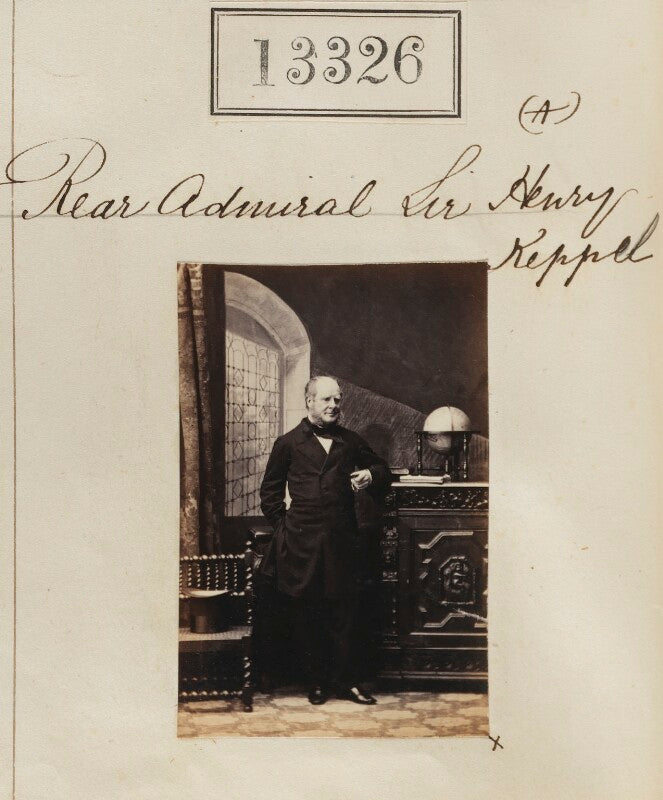 13326
(A)
Rear Admiral Sir Henry
Keppel
x